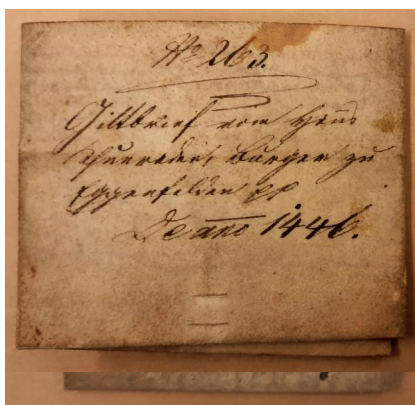 No 263.
Giltbrief vom Hans
Burger zu
Eggenfelden pp
De anno 1446.